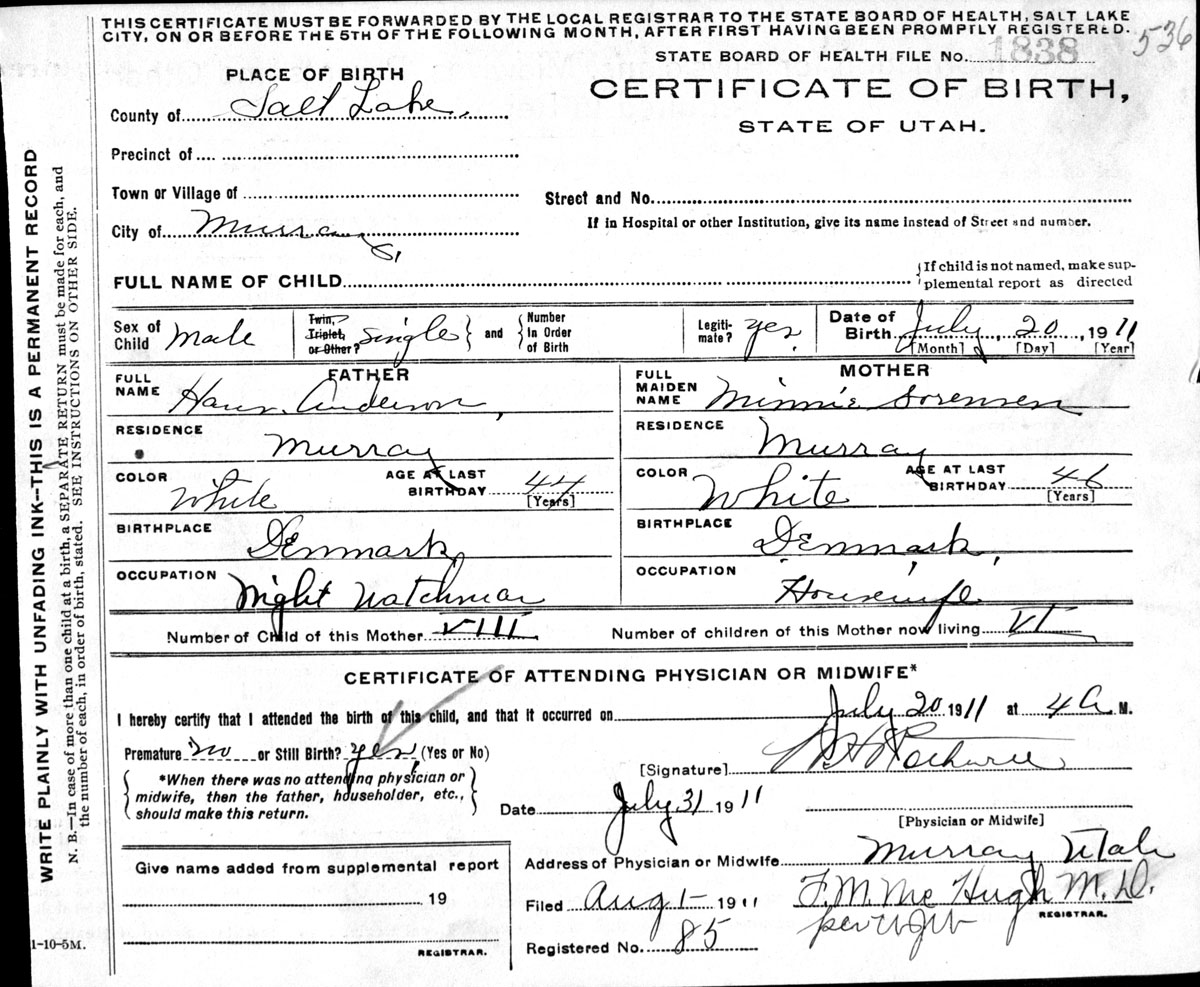 THIS CERTIFICATE MUST BE FORWARDED BY THE LOCAL REGISTRAR TO THE STATE BOARD OF HEALTH, SALT LAKE
CITY, ON OR BEFORE THE 5TH OF THE FOLLOWING MONTH, AFTER FIRST HAVING BEEN PROMPTLY REGISTERED.
536
STATE BOARD OF HEALTH FILE No. 1838
PLACE OF BIRTH
CERTIFICATE OF BIRTH,
County of Salt Lake,
STATE OF UTAH.
Precinct of
Town or Village of
Street and No.
City of Murray,
If in Hospital or other Institution, give its name instead of Street and number.
FULL NAME OF CHILD
{If child is not named, make sup-
plemental report as directed
Sex of Child Male
Twin, Triplet, or Other? Single } and { Number In Order of Birth
Legiti-mate? yes.
Date of Birth July 20, 1911
[Month] [Day] [Year]
FATHER
MOTHER
FULL NAME Hans Anderson,
FULL MAIDEN NAME Minnie Sorensen
RESIDENCE Murray
RESIDENCE Murray
COLOR White AGE AT LAST BIRTHDAY 44 [Years]
COLOR White AGE AT LAST BIRTHDAY 46 [Years]
BIRTHPLACE Denmark,
BIRTHPLACE Denmark,
OCCUPATION Night Watchman
OCCUPATION Housewife
Number of Child of this Mother VIII
Number of children of this Mother now living VI
CERTIFICATE OF ATTENDING PHYSICIAN OR MIDWIFE*
I hereby certify that I attended the birth of this child, and that it occurred on July 20 1911 at 4 A M.
Premature no or Still Birth? yes, (Yes or No)
[Signature]
{ *When there was no attending physician or
midwife, then the father, householder, etc.,
should make this return. }
Date July 31 1911
[Physician or Midwife]
Give name added from supplemental report
19
REGISTRAR.
Address of Physician or Midwife Murray Utah
Filed Aug 1- 1911
F. M. McHugh M.D.
REGISTRAR.
per
Registered No. 85
1-10-5M.
WRITE PLAINLY WITH UNFADING INK--THIS IS A PERMANENT RECORD
N. B.—In case of more than one child at a birth, a SEPARATE RETURN must be made for each, and
the number of each, in order of birth, stated. SEE INSTRUCTIONS ON OTHER SIDE.